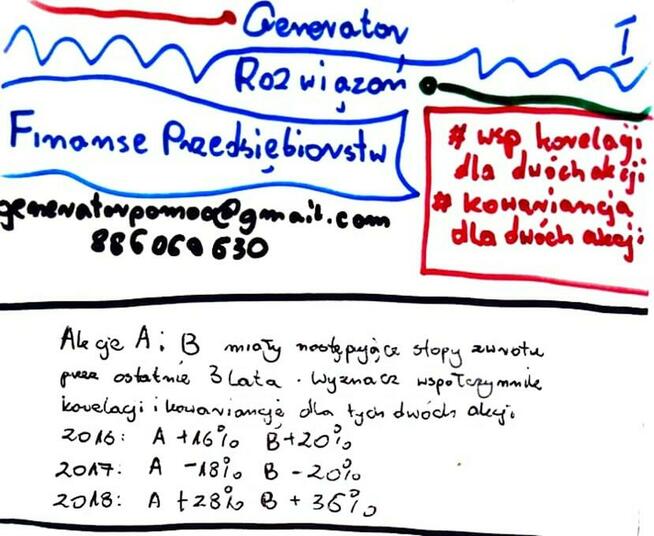 Generator
I
Rozwiązań
Finanse Przedsiębiorstw
# wsp korelacji
dla dwóch akcji
# kowariancja
dla dwóch akcji
generatorpomoc@gmail.com
886 060 630
Akcje A i B miały następujące stopy zwrotu
przez ostatnie 3 lata. Wyznacz współczynnik
korelacji i kowariancję dla tych dwóch akcji
2016: A +16% B +20%
2017: A -18% B -20%
2018: A +28% B +36%